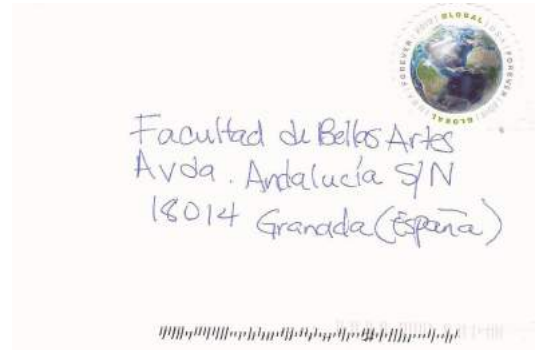 GLOBAL
FOREVER
Facultad de Bellas Artes
Avda. Andalucía S/N
18014 Granada (España)